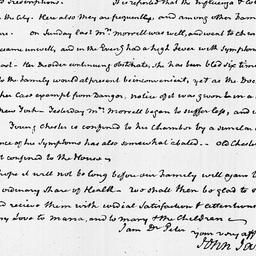 It is reported that the Influenza & 
in the City. Here also they are frequently, and among other Fami
On Sunday last Mrs. Morrell was well, and went to chu
became unwell, and in the Eveng had a high Fever with Symptoms
The Disorder continuing obstinate, she has been bled six tim
to the family would at present be inconvenient, yet as the Doc
Case exempt from Danger, notice of it was given to
New York. Yesterday Mrs. Morrell began to suffer less, and
Young Chester is confined to his Chamber by a similar
of his Symptoms has also somewhat abated. Old Cheste
confined to the House
hope it will not be long before our Family will again
ordinary share of Health. We shall then be glad to
and recieve them with cordial Satisfaction & attentions
my Love to Maria, and to Mary & the Children
I am Dr Peter
your very aff
John Ja